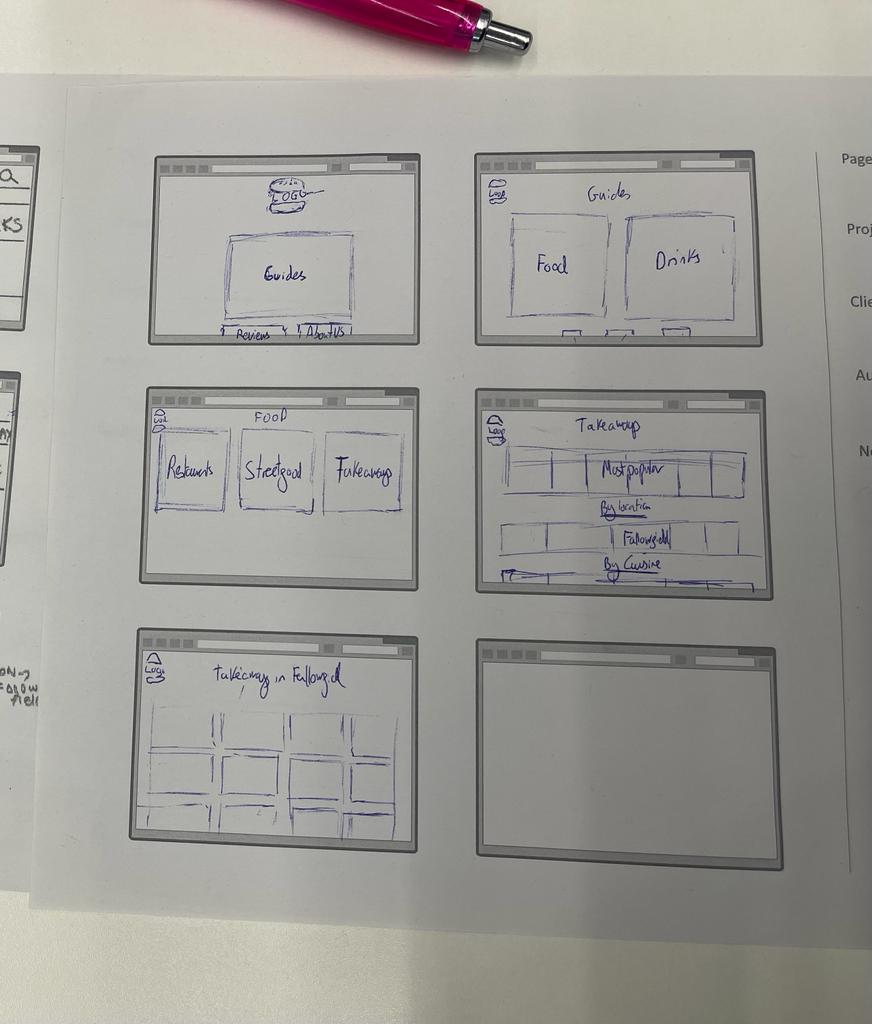 LOGO
Guides
Reviews
About Us
Logo
Guides
Food
Drinks
FOOD
Restaurants
Streetfood
Takeaways
Logo
Takeaways
Most popular
By location
Fallowfield
By Cuisine
Logo
Takeaways in Fallowfield
Page
Proj
Clie
Au
No
KS